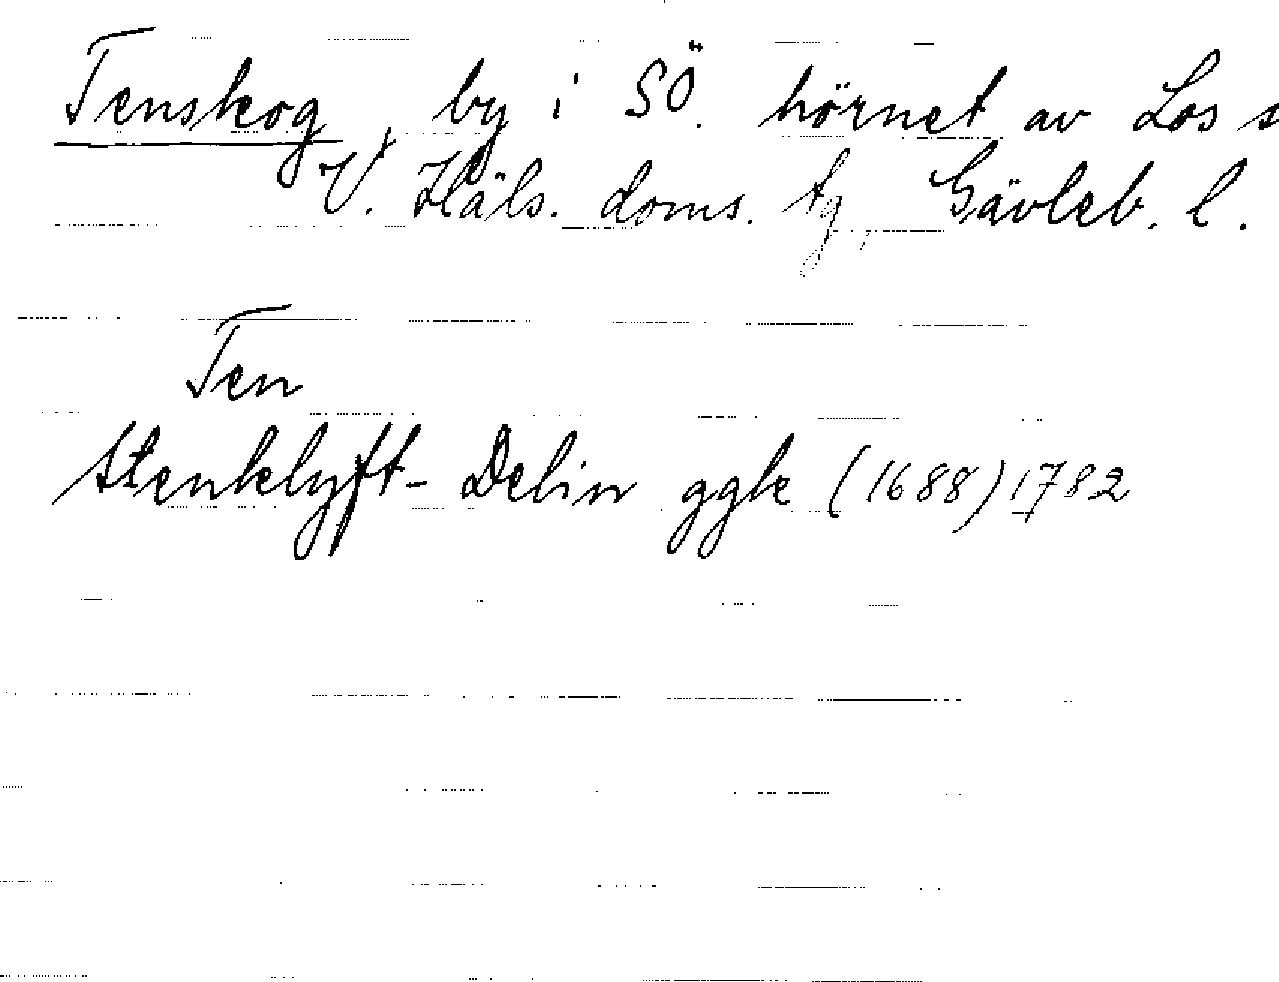 Tenskog, by i SÖ. hörnet av Los s
V. Häls. doms. tg, Gävleb. l.
Ten
Stenklyft- Delin ggk (1688) 1782